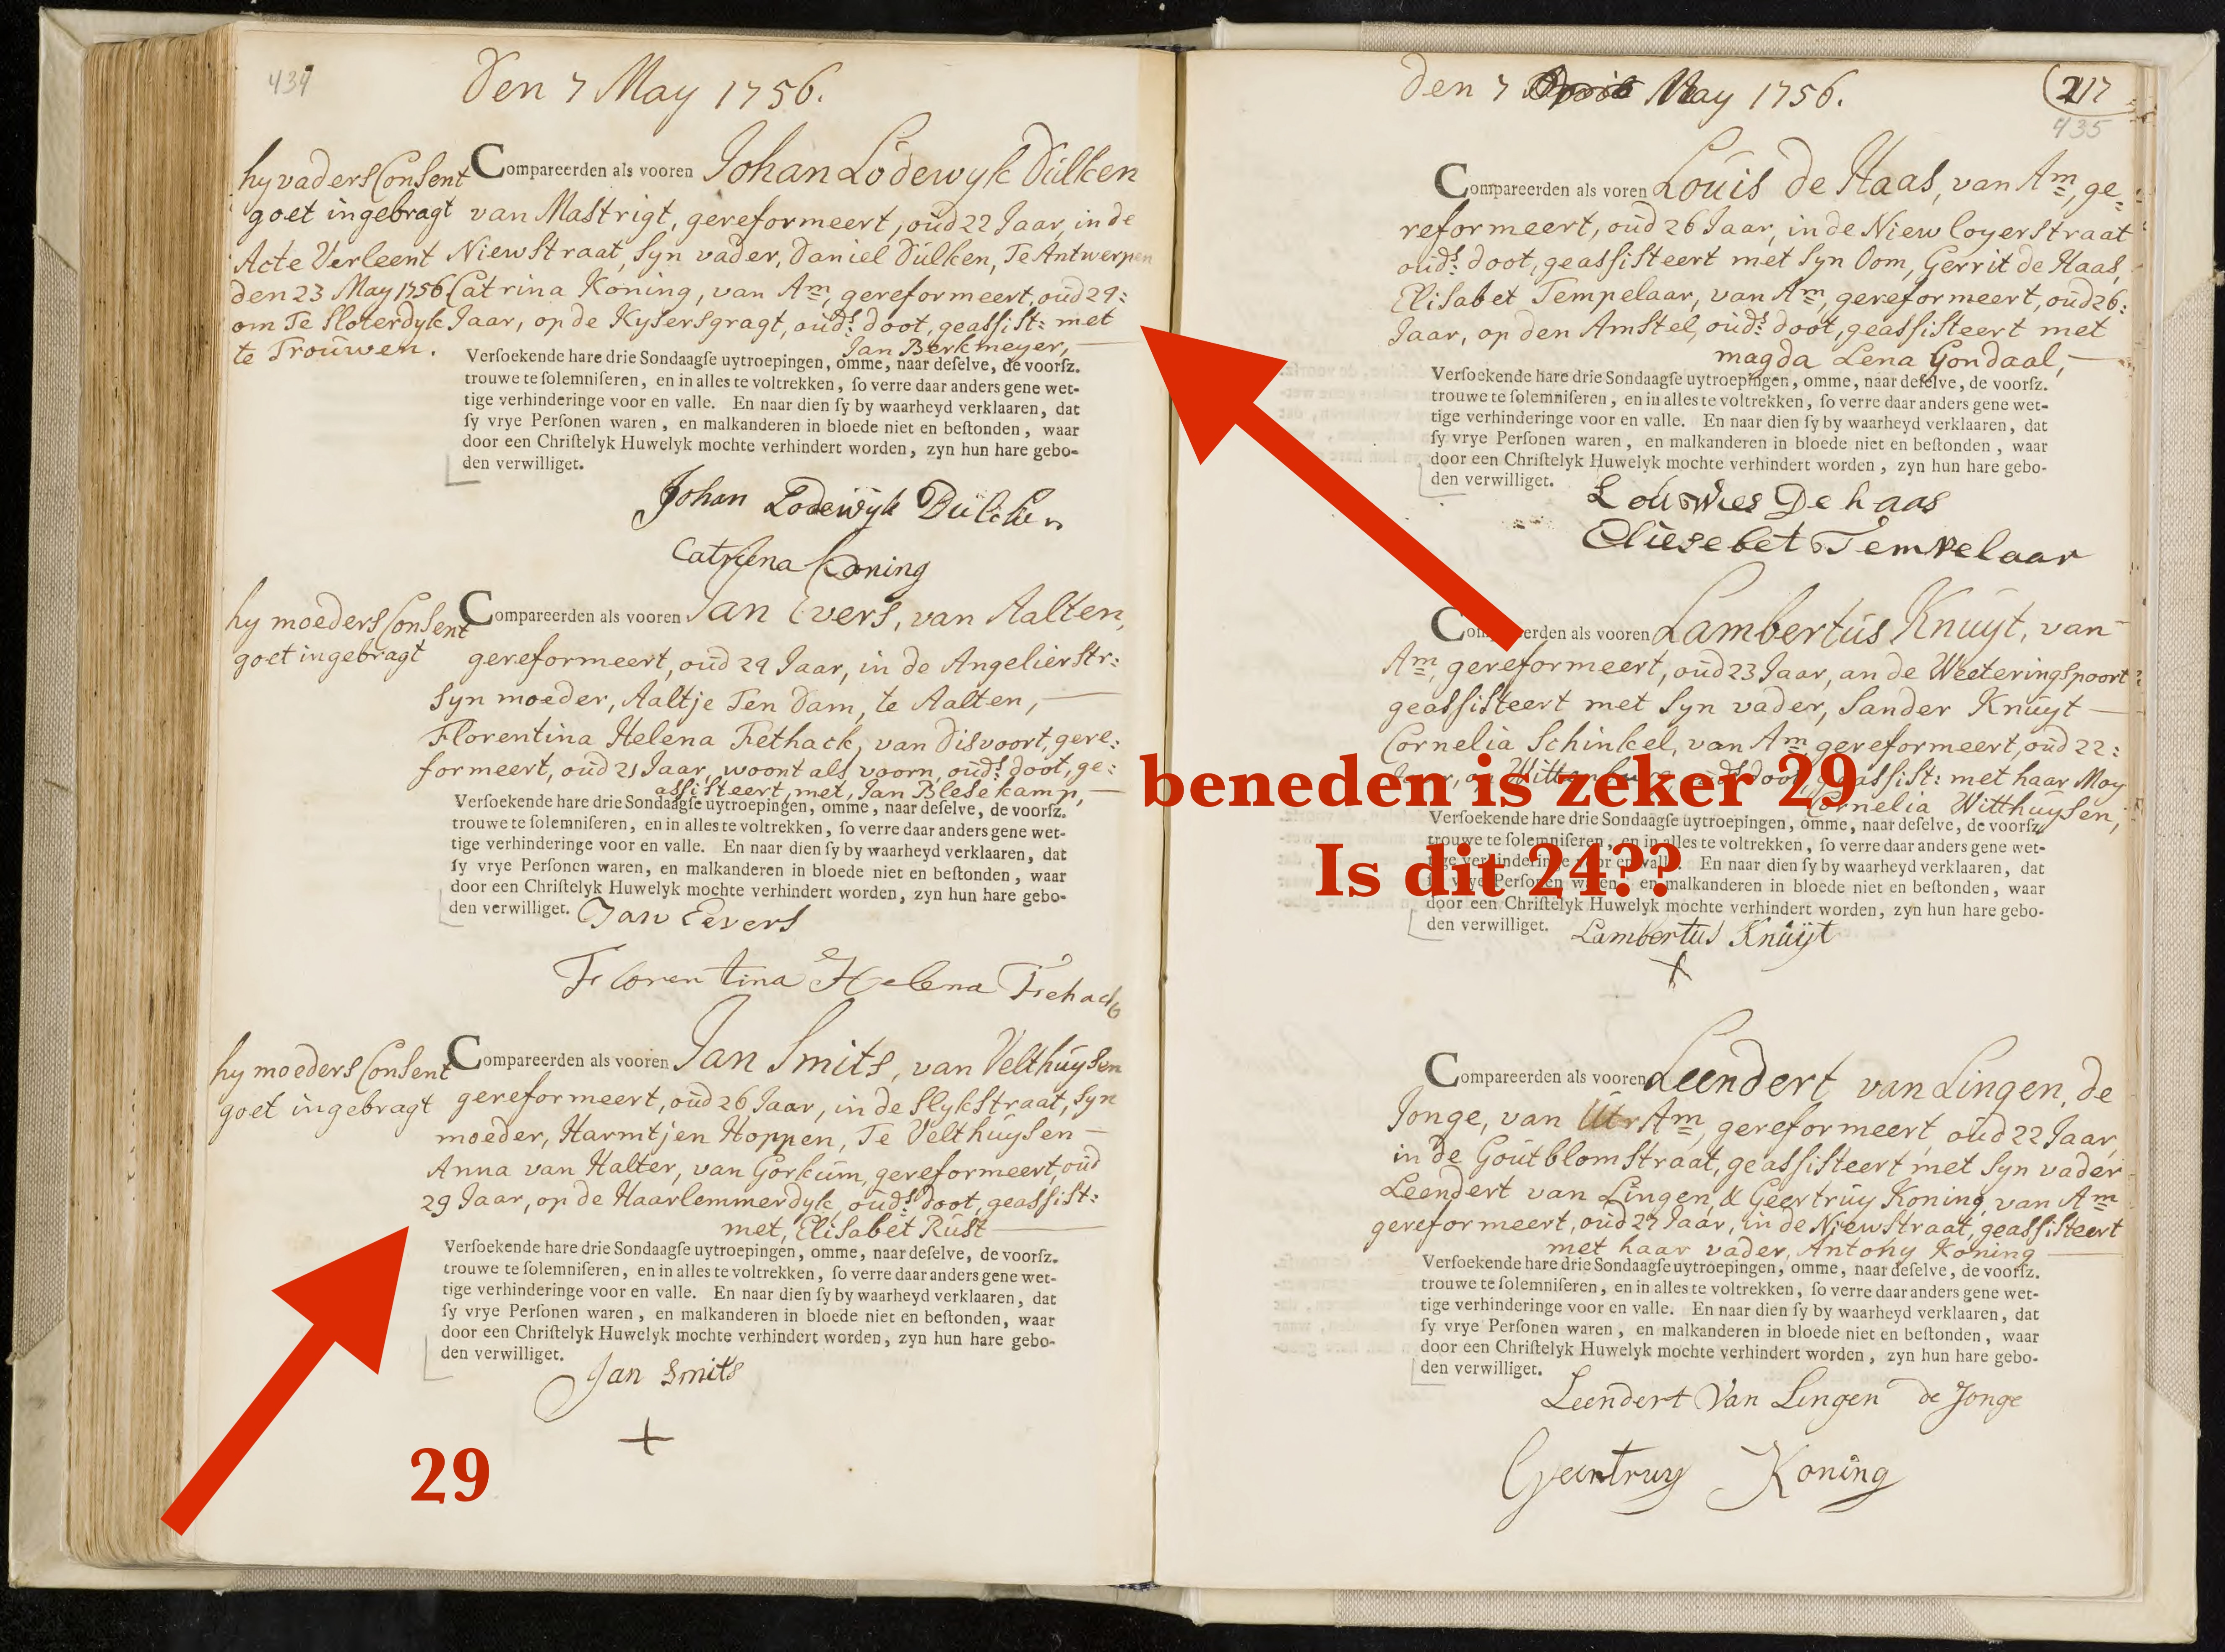 434
Den 7 May 1756.
hy vaders Consent
goet ingebragt
Acte Verleent
den 23 May 1756
om Te Sloterdyk
te Trouwen.
Compareerden als vooren Johan Lodewyk Dülken
van Mastrigt, gereformeert, oud 22 Jaar, in de
Niewstraat, Syn vader, Daniel Dülken, Te Antwerpen
Catrina Koning, van Am, gereformeert, oud
Jaar, op de Kysersgragt, ouds: doot, geassist: met
Jan Berkmeyer,
Verſoekende hare drie Sondaagſe uytroepingen, omme, naar deſelve, de voorſz.
trouwe te ſolemniſeren, en in alles te voltrekken, ſo verre daar anders gene wet-
tige verhinderinge voor en valle. En naar dien ſy by waarheyd verklaaren, dat
ſy vrye Perſonen waren, en malkanderen in bloede niet en beſtonden, waar
door een Chriſtelyk Huwelyk mochte verhindert worden, zyn hun hare gebo-
den verwilliget.
Johan Lodewyk Dülcken
Catryena Koning
hy moeders Consent
goet ingebragt
Compareerden als vooren Jan Evers, van Aalten,
gereformeert, oud 29 Jaar, in de Angelierstr:
Syn moeder, Aaltje Ten Dam, te Aalten,
Florentina Helena Fethack, van Disvoort, gere:
formeert, oud 21 Jaar, woont als voorn, ouds: doot, ge:
assisteert, met, Jan Blesekamp,
Verſoekende hare drie Sondaagſe uytroepingen, omme, naar deſelve, de voorſz.
trouwe te ſolemniſeren, en in alles te voltrekken, ſo verre daar anders gene wet-
tige verhinderinge voor en valle. En naar dien ſy by waarheyd verklaaren, dat
ſy vrye Perſonen waren, en malkanderen in bloede niet en beſtonden, waar
door een Chriſtelyk Huwelyk mochte verhindert worden, zyn hun hare gebo-
den verwilliget.
Jan Eevers
Florentina Helena Fehack
hy moeders Consent
goet ingebragt
Compareerden als vooren Jan Smits, van Velthuysen
gereformeert, oud 26 Jaar, in de Slykstraat, Syn
moeder, Harmtjen Hoppen, Te Velthuysen
Anna van Halter, van Gorkum, gereformeert, oud
29 Jaar, op de Haarlemmerdyk, ouds: doot, geassist:
met, Elisabet Rust
Verſoekende hare drie Sondaagſe uytroepingen, omme, naar deſelve, de voorſz.
trouwe te ſolemniſeren, en in alles te voltrekken, ſo verre daar anders gene wet-
tige verhinderinge voor en valle. En naar dien ſy by waarheyd verklaaren, dat
ſy vrye Perſonen waren, en malkanderen in bloede niet en beſtonden, waar
door een Chriſtelyk Huwelyk mochte verhindert worden, zyn hun hare gebo-
den verwilliget.
Jan Smits
29
den 7 May 1756.
217
435
Compareerden als voren Louis de Haas, van Am, ge:
reformeert, oud 26 Jaar, in de Niew loyerstraat
ouds: doot, geassisteert met Syn Oom, Gerrit de Haas,
Elisabet Tempelaar, van Am, gereformeert, oud 26:
Jaar, op den Amstel, ouds: doot, geassisteert met
magda Lena Gondaal,
Verſoekende hare drie Sondaagſe uytroepingen, omme, naar deſelve, de voorſz.
trouwe te ſolemniſeren, en in alles te voltrekken, ſo verre daar anders gene wet-
tige verhinderinge voor en valle. En naar dien ſy by waarheyd verklaaren, dat
ſy vrye Perſonen waren, en malkanderen in bloede niet en beſtonden, waar
door een Chriſtelyk Huwelyk mochte verhindert worden, zyn hun hare gebo-
den verwilliget.
Louwies De haas
Eliesebet Tempelaar
Compareerden als vooren Lambertus Knuyt, van
Am, gereformeert, oud 23 Jaar, an de Weeteringspoort
geassisteert met Syn vader, Sander Knuyt
Cornelia Schinkel, van Am gereformeert, oud 22:
Jaar, op Wittenburg, ouds: doot, geassist: met haar Moy
Cornelia Witthuysen,
beneden is zeker 29
Is dit 24??
Verſoekende hare drie Sondaagſe uytroepingen, omme, naar deſelve, de voorſz.
trouwe te ſolemniſeren, en in alles te voltrekken, ſo verre daar anders gene wet-
tige verhinderinge voor en valle. En naar dien ſy by waarheyd verklaaren, dat
ſy vrye Perſonen waren, en malkanderen in bloede niet en beſtonden, waar
door een Chriſtelyk Huwelyk mochte verhindert worden, zyn hun hare gebo-
den verwilliget.
Lambertus Knuyt
Compareerden als vooren Leendert van Lingen, de
Jonge, van Am, gereformeert, oud 22 Jaar,
in de Goutblomstraat, geassisteert met Syn vader
Leendert van Lingen, & Geertruy Koning, van Am
gereformeert, oud 27 Jaar, in de Niewstraat, geassisteert
met haar vader, Antony Koning
Verſoekende hare drie Sondaagſe uytroepingen, omme, naar deſelve, de voorſz.
trouwe te ſolemniſeren, en in alles te voltrekken, ſo verre daar anders gene wet-
tige verhinderinge voor en valle. En naar dien ſy by waarheyd verklaaren, dat
ſy vrye Perſonen waren, en malkanderen in bloede niet en beſtonden, waar
door een Chriſtelyk Huwelyk mochte verhindert worden, zyn hun hare gebo-
den verwilliget.
Leendert Van Lingen de Jonge
Geertruy Koning